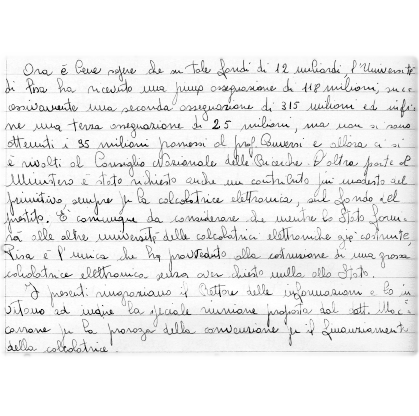 Ora è bene sapere che su tale fondi di 12 miliardi, l'Università
di Pisa ha ricevuto una prima assegnazione di 118 milioni, succ
essivamente una seconda assegnazione di 315 milioni ed infi
ne una terza assegnazione di 25 milioni, ma non si sono
ottenuti i 35 milioni promessi al prof. e allora ci si
è rivolti al Consiglio Nazionale delle Ricerche. D'altra parte al
Ministero è stato richiesto anche un contributo più modesto del
primitivo, sempre per la calcolatrice elettronica, sul fondo del
. È comunque da considerare che mentre lo Stato forni
rà alle altre università delle calcolatrici elettroniche già costruite,
Pisa è l'unica che ha provveduto alla costruzione di una grossa
calcolatrice elettronica senza aver chiesto nulla allo Stato.
I presenti ringraziano il Rettore delle informazioni e lo in
vitano ad indire la speciale riunione proposta dal dott. Mac
carrone per la proroga della convenzione per il finanziamento
della calcolatrice.